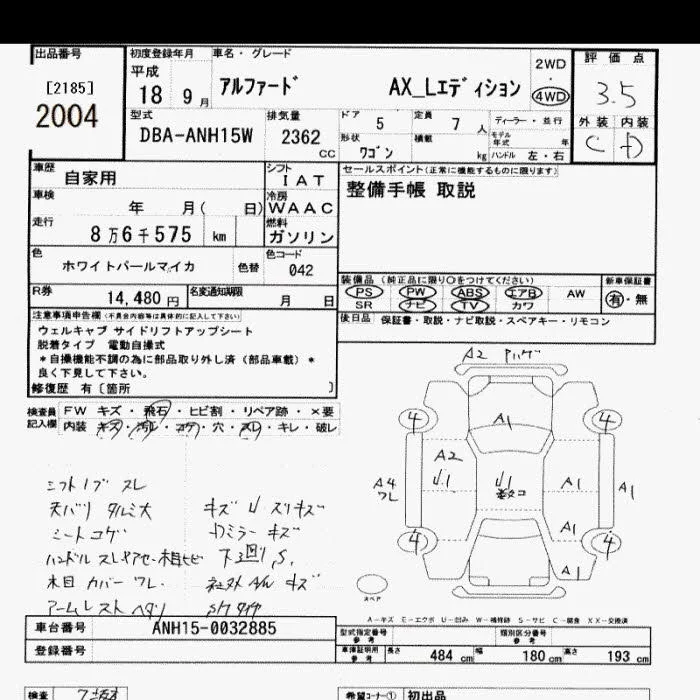 出品番号
[2185]
2004
初度登録年月
平成
18 9 月
車名・グレード
アルファード AX_Lエディション
2WD
・
4WD
評価点
3.5
外装 内装
C D
型式
DBA-ANH15W
排気量
2362 cc
ドア 5
定員 7 人
形状 ワゴン
積載 kg
ディーラー・並行
モデル年式 年
ハンドル 左・右
車歴
自家用
車検
年 月( 日)
シフト
IAT
冷房
WAAC
燃料
ガソリン
走行
8万6千575 km
色
ホワイトパールマイカ 色替
色コード
042
R券
14,480円
名変通知期限
月 日
セールスポイント(正常に機能するものに限ります)
整備手帳 取説
装備品(純正品に限り○をつけてください)
PS PW ABS エアB AW
SR ナビ TV カワ
新車保証書
有・無
後日品 保証書・取説・ナビ取説・スペアキー・リモコン
注意事項申告欄(不具合内容等は具体的に記入して下さい)
ウェルキャブ サイドリフトアップシート
脱着タイプ 電動自操式
*自操機能不調の為に部品取り外し済(部品車載)*
良く下見して下さい。
修復歴 有〔箇所 〕
検査員記入欄
FW キズ・飛石・ヒビ割・リペア跡・×要
内装 キズ・汚れ・コゲ・穴・スレ・キレ・破レ
A2
4 4
A1
A2
U1 U1
A1
A1
A4
ワレ
A1
4 4
A1
スペア
シフトノブ スレ
天バリ タルミ大
シートコゲ
キズ U スリキズ
ドアミラー キズ
下廻りS.
木目 カバー ワレ
キズ
アームレスト ヘタリ
A-キズ E-エクボ U-凹み W-補修跡 S-サビ C-腐食 XX-交換済
車台番号 ANH15-0032885
登録番号
型式指定番号 参考
類別区分番号 参考
車庫証明用 参考
長さ 484 cm 幅 180 cm 高さ 193 cm
検査
希望コーナー① 初出品